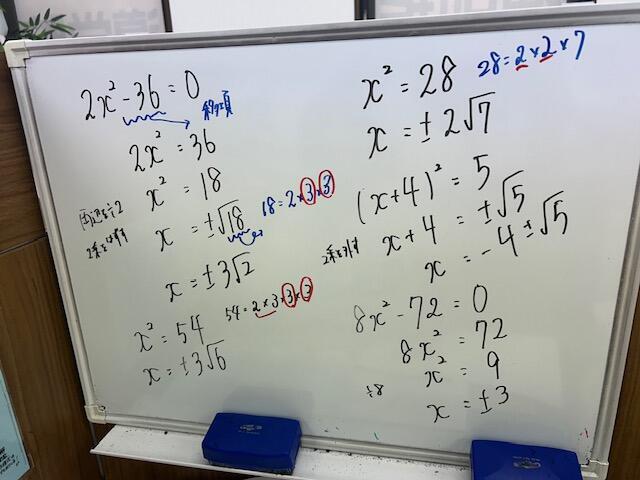 2x² - 36 = 0
移項
2x² = 36
x² = 18
÷2
x = ±√18
18 = 2 × 3 × 3
x = ±3√2
x² = 54
54 = 2 × 3 × 3 × 3
x = ±3√6
x² = 28
28 = 2 × 2 × 7
x = ±2√7
(x+4)² = 5
x+4 = ±√5
x = -4 ± √5
8x² - 72 = 0
8x² = 72
x² = 9
÷8
x = ±3